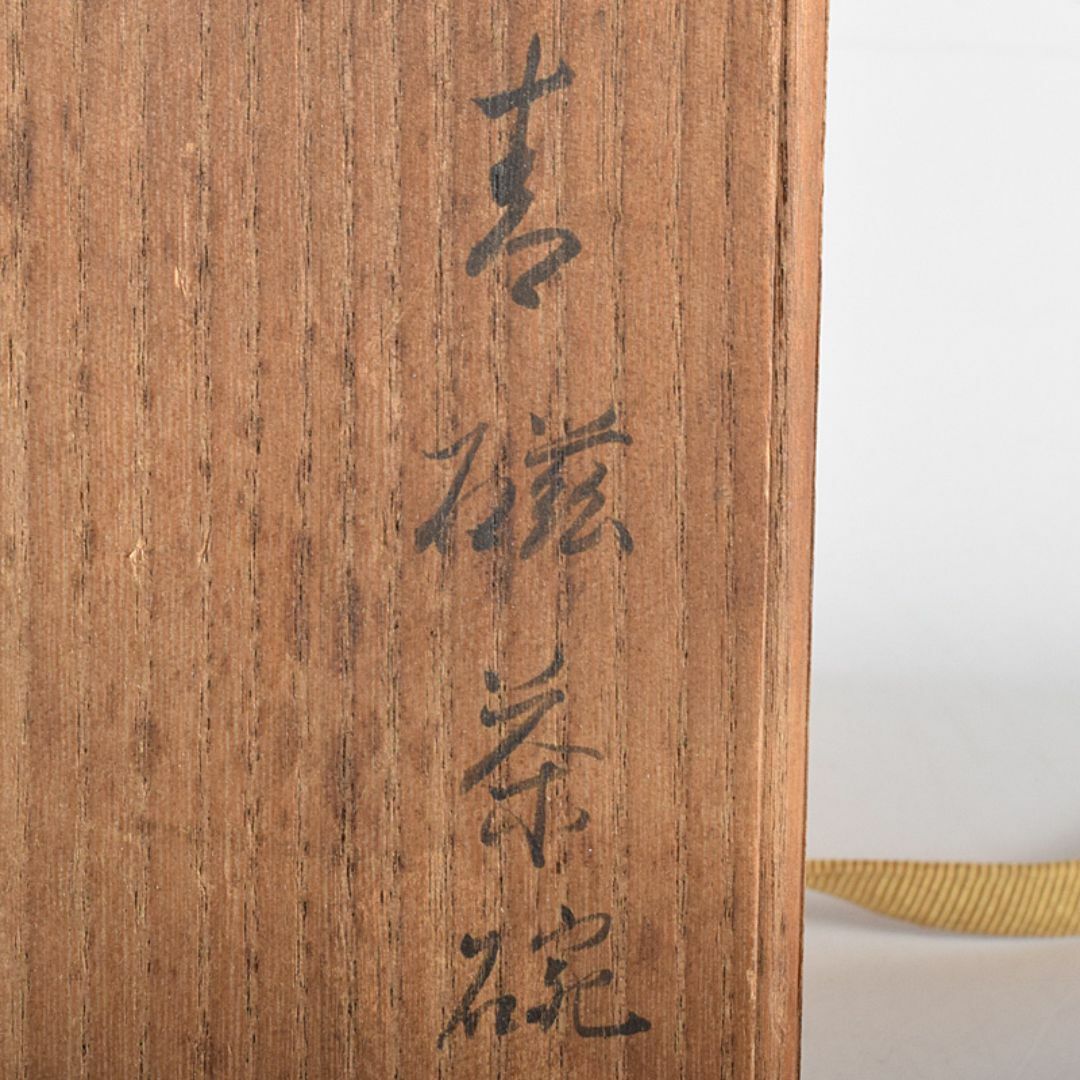 青磁茶碗